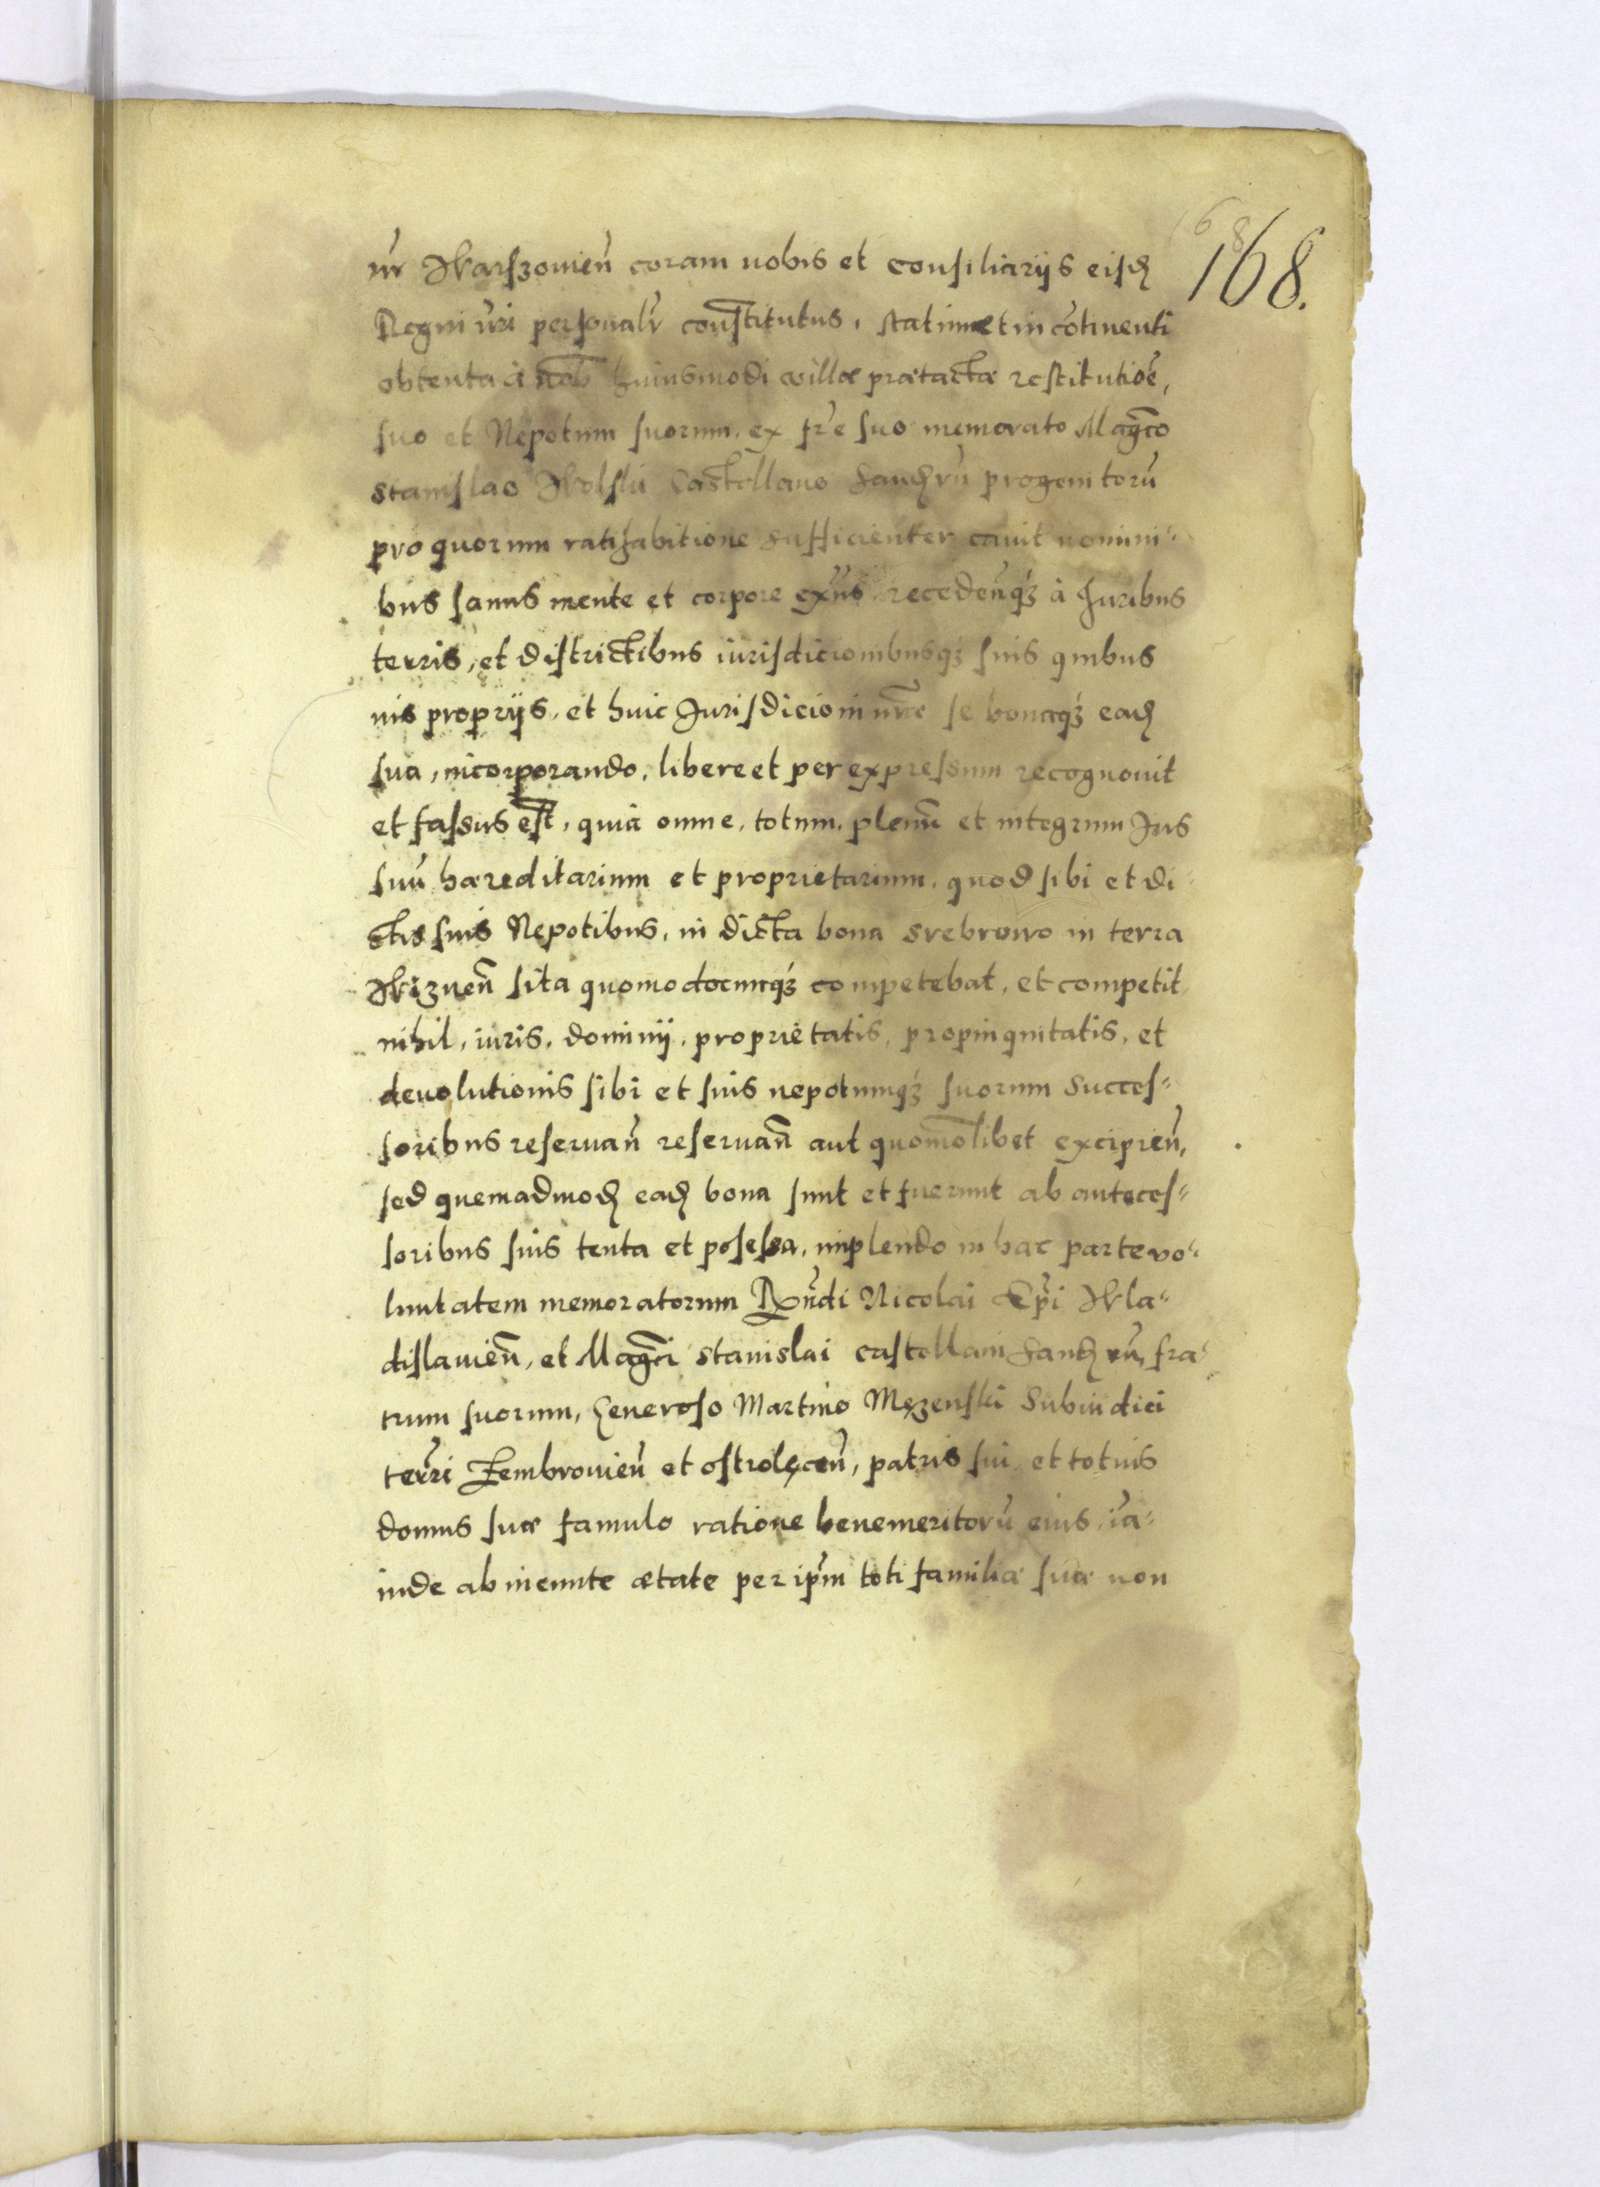 168
168.
nr̃ Warszouieñ coram nobis et consiliariis eisd
Regni nr̃i personalr̃ constitutus, statim et in cõtinenti
obtenta à nob̃ huiusmodi villæ prætactæ restitutiõe,
suo et Nepotum suorum, ex fr̃e suo memorato Magco
Stanislao Wolski Castellano progenitorũ
pro quorum ratihabitione sufficienter cavit nomini-
bus sanus mente et corpore exñs recedeñqꝫ à Iuribus
terris, et districtibus iurisdicionibusqꝫ suis quibus
uis proprijs, et huic Iurisdicioni nrẽ se bonaqꝫ ead
sua, incorporando, libere et per expressum recognouit
et fassus est, quia omne, totum, plenũ et integrum Ius
suũ hæreditarium et proprietarium, quod sibi et di-
ctis suis Nepotibus, in dicta bona Srebrowo in terra
Wizneñ sita quomodocunqꝫ competebat, et competit
nihil, iuris, dominij, proprietatis, propinquitatis, et
deuolutionis sibi et suis nepotumqꝫ suorum Succes-
soribus reseruañ reseruañ aut quomõlibet excipieñ,
sed quemadmod ead bona sunt et fuerunt ab anteces-
soribus suis tenta et posessa, implendo in hac parte vo-
luntatem memoratorum Rñdi Nicolai Epĩ Wla-
dislauieñ, et Magci Stanislai castellani fra-
trum suorum, Generoso Martino Męzenski Subiudici
terrĩ Zembrouieñ et ostrolęceñ, patris sui et totius
domus suæ famulo ratione benemeritorũ eius, iã-
inde ab ineunte ætate per ip̃m toti familiæ suæ non